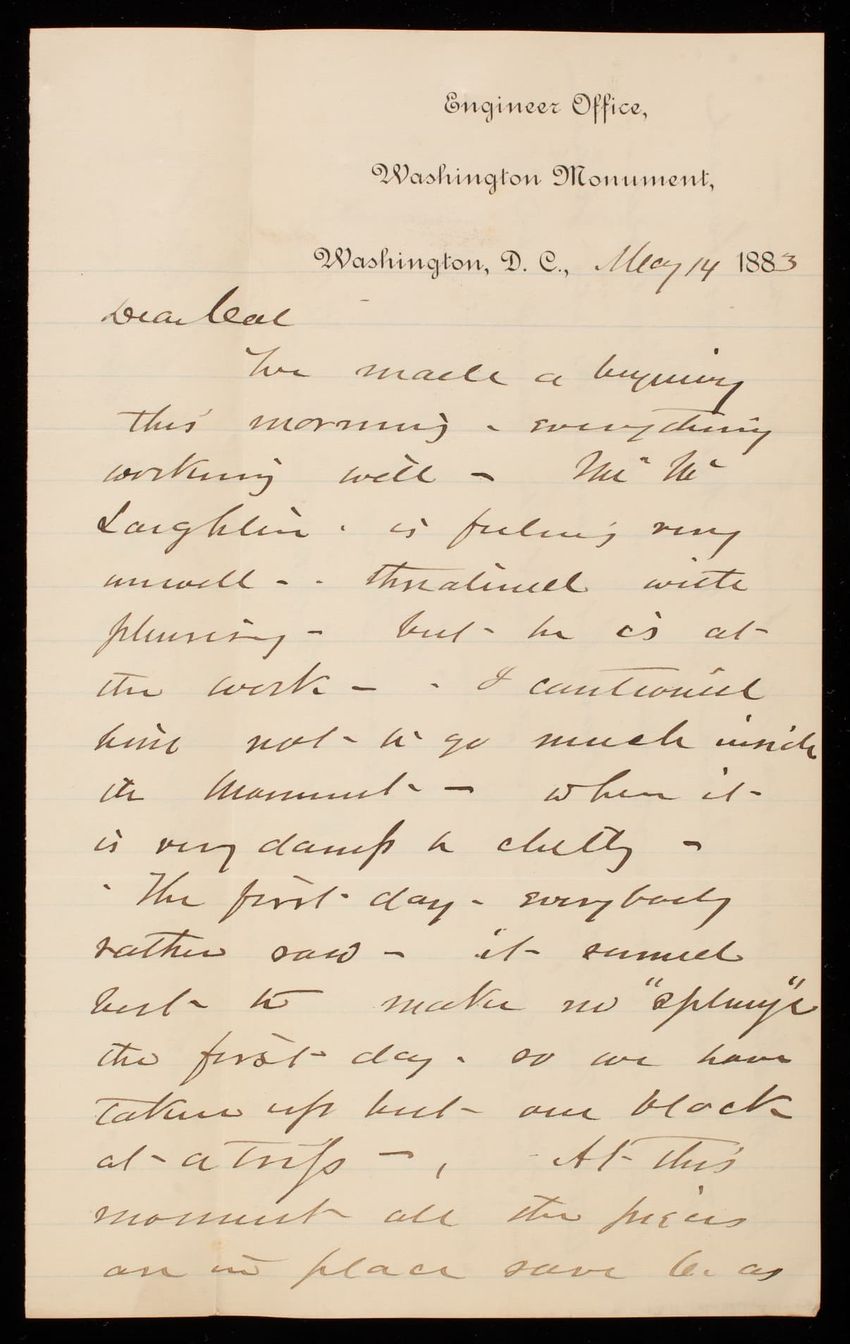 Engineer Office,
Washington Monument,
Washington, D. C., May 14 1883
Dear Col
We made a beginning
this morning - everything
working well - Mr Mc
Laughlin - is feeling very
unwell - - threatened with
pleurisy - but - he is at
the work - - I cautioned
him not - to go much inside
the Monument - when it -
is very damp & chilly -
- The first day - everybody
rather raw - it seemed
best - to make no "splurge"
the first day - so we have
taken up but - one block
at - a trip - , - At this
moment all the pieces
are in place save 6. as